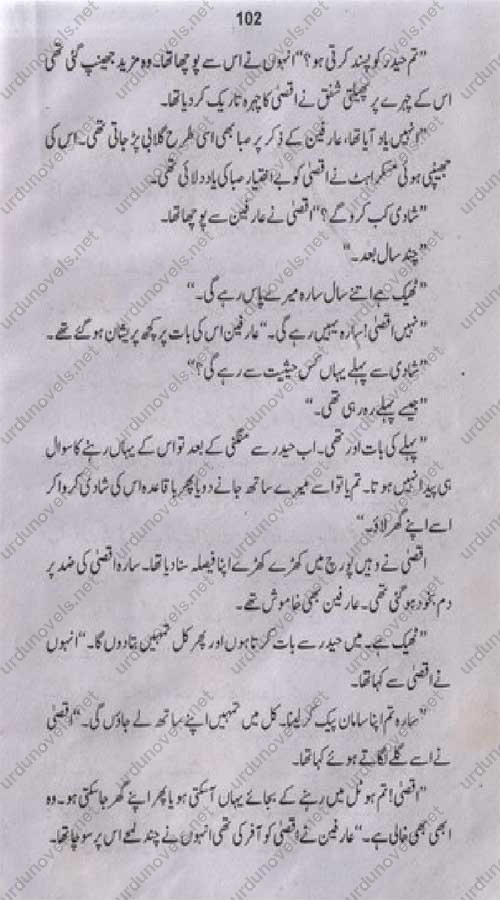 102
”تم حیدر کو پسند کرتی ہو؟“ انہوں نے اس سے پوچھا تھا۔ وہ مزید جھینپ گئی تھی
اس کے چہرے پر پھیلتی شفق نے اقصیٰ کا چہرہ تاریک کر دیا تھا۔
”انہیں یاد آیا تھا، عارفین کے ذکر پر صبا بھی اسی طرح گلابی پڑ جاتی تھی۔ اس کی
جھینپی ہوئی مسکراہٹ نے اقصیٰ کو بے اختیار صبا کی یاد دلائی تھی۔
”شادی کب کرو گے؟“ اقصیٰ نے عارفین سے پوچھا تھا۔
”چند سال بعد۔“
”ٹھیک ہے اتنے سال سارہ میرے پاس رہے گی۔“
”نہیں اقصیٰ! سارہ یہیں رہے گی۔“ عارفین اس کی بات پر کچھ پریشان ہو گئے تھے۔
”شادی سے پہلے یہاں کس حیثیت سے رہے گی؟“
”جیسے پہلے رہ رہی تھی۔“
”پہلے کی بات اور تھی۔ اب حیدر سے منگنی کے بعد تو اس کے یہاں رہنے کا سوال
ہی پیدا نہیں ہوتا۔ تم یا تو اسے میرے ساتھ جانے دو یا پھر باقاعدہ اس کی شادی کروا کر
اسے اپنے گھر لاؤ۔“
اقصیٰ نے وہیں پورچ میں کھڑے کھڑے اپنا فیصلہ سنا دیا تھا۔ سارہ اقصیٰ کی ضد پر
دم بخود ہو گئی تھی۔ عارفین بھی خاموش تھے۔
”ٹھیک ہے۔ میں حیدر سے بات کرتا ہوں اور پھر کل تمہیں بتا دوں گا۔“ انہوں
نے اقصیٰ سے کہا تھا۔
”سارہ تم اپنا سامان پیک کر لینا۔ کل میں تمہیں اپنے ساتھ لے جاؤں گی۔“ اقصیٰ
نے اسے گلے لگاتے ہوئے کہا تھا۔
”اقصیٰ! تم ہوٹل میں رہنے کے بجائے یہاں آ سکتی ہو یا پھر اپنے گھر جا سکتی ہو۔ وہ
ابھی بھی خالی ہے۔“ عارفین نے اقصیٰ کو آفر کی تھی انہوں نے چند لمحے اس پر سوچا تھا۔
urdunovels.net